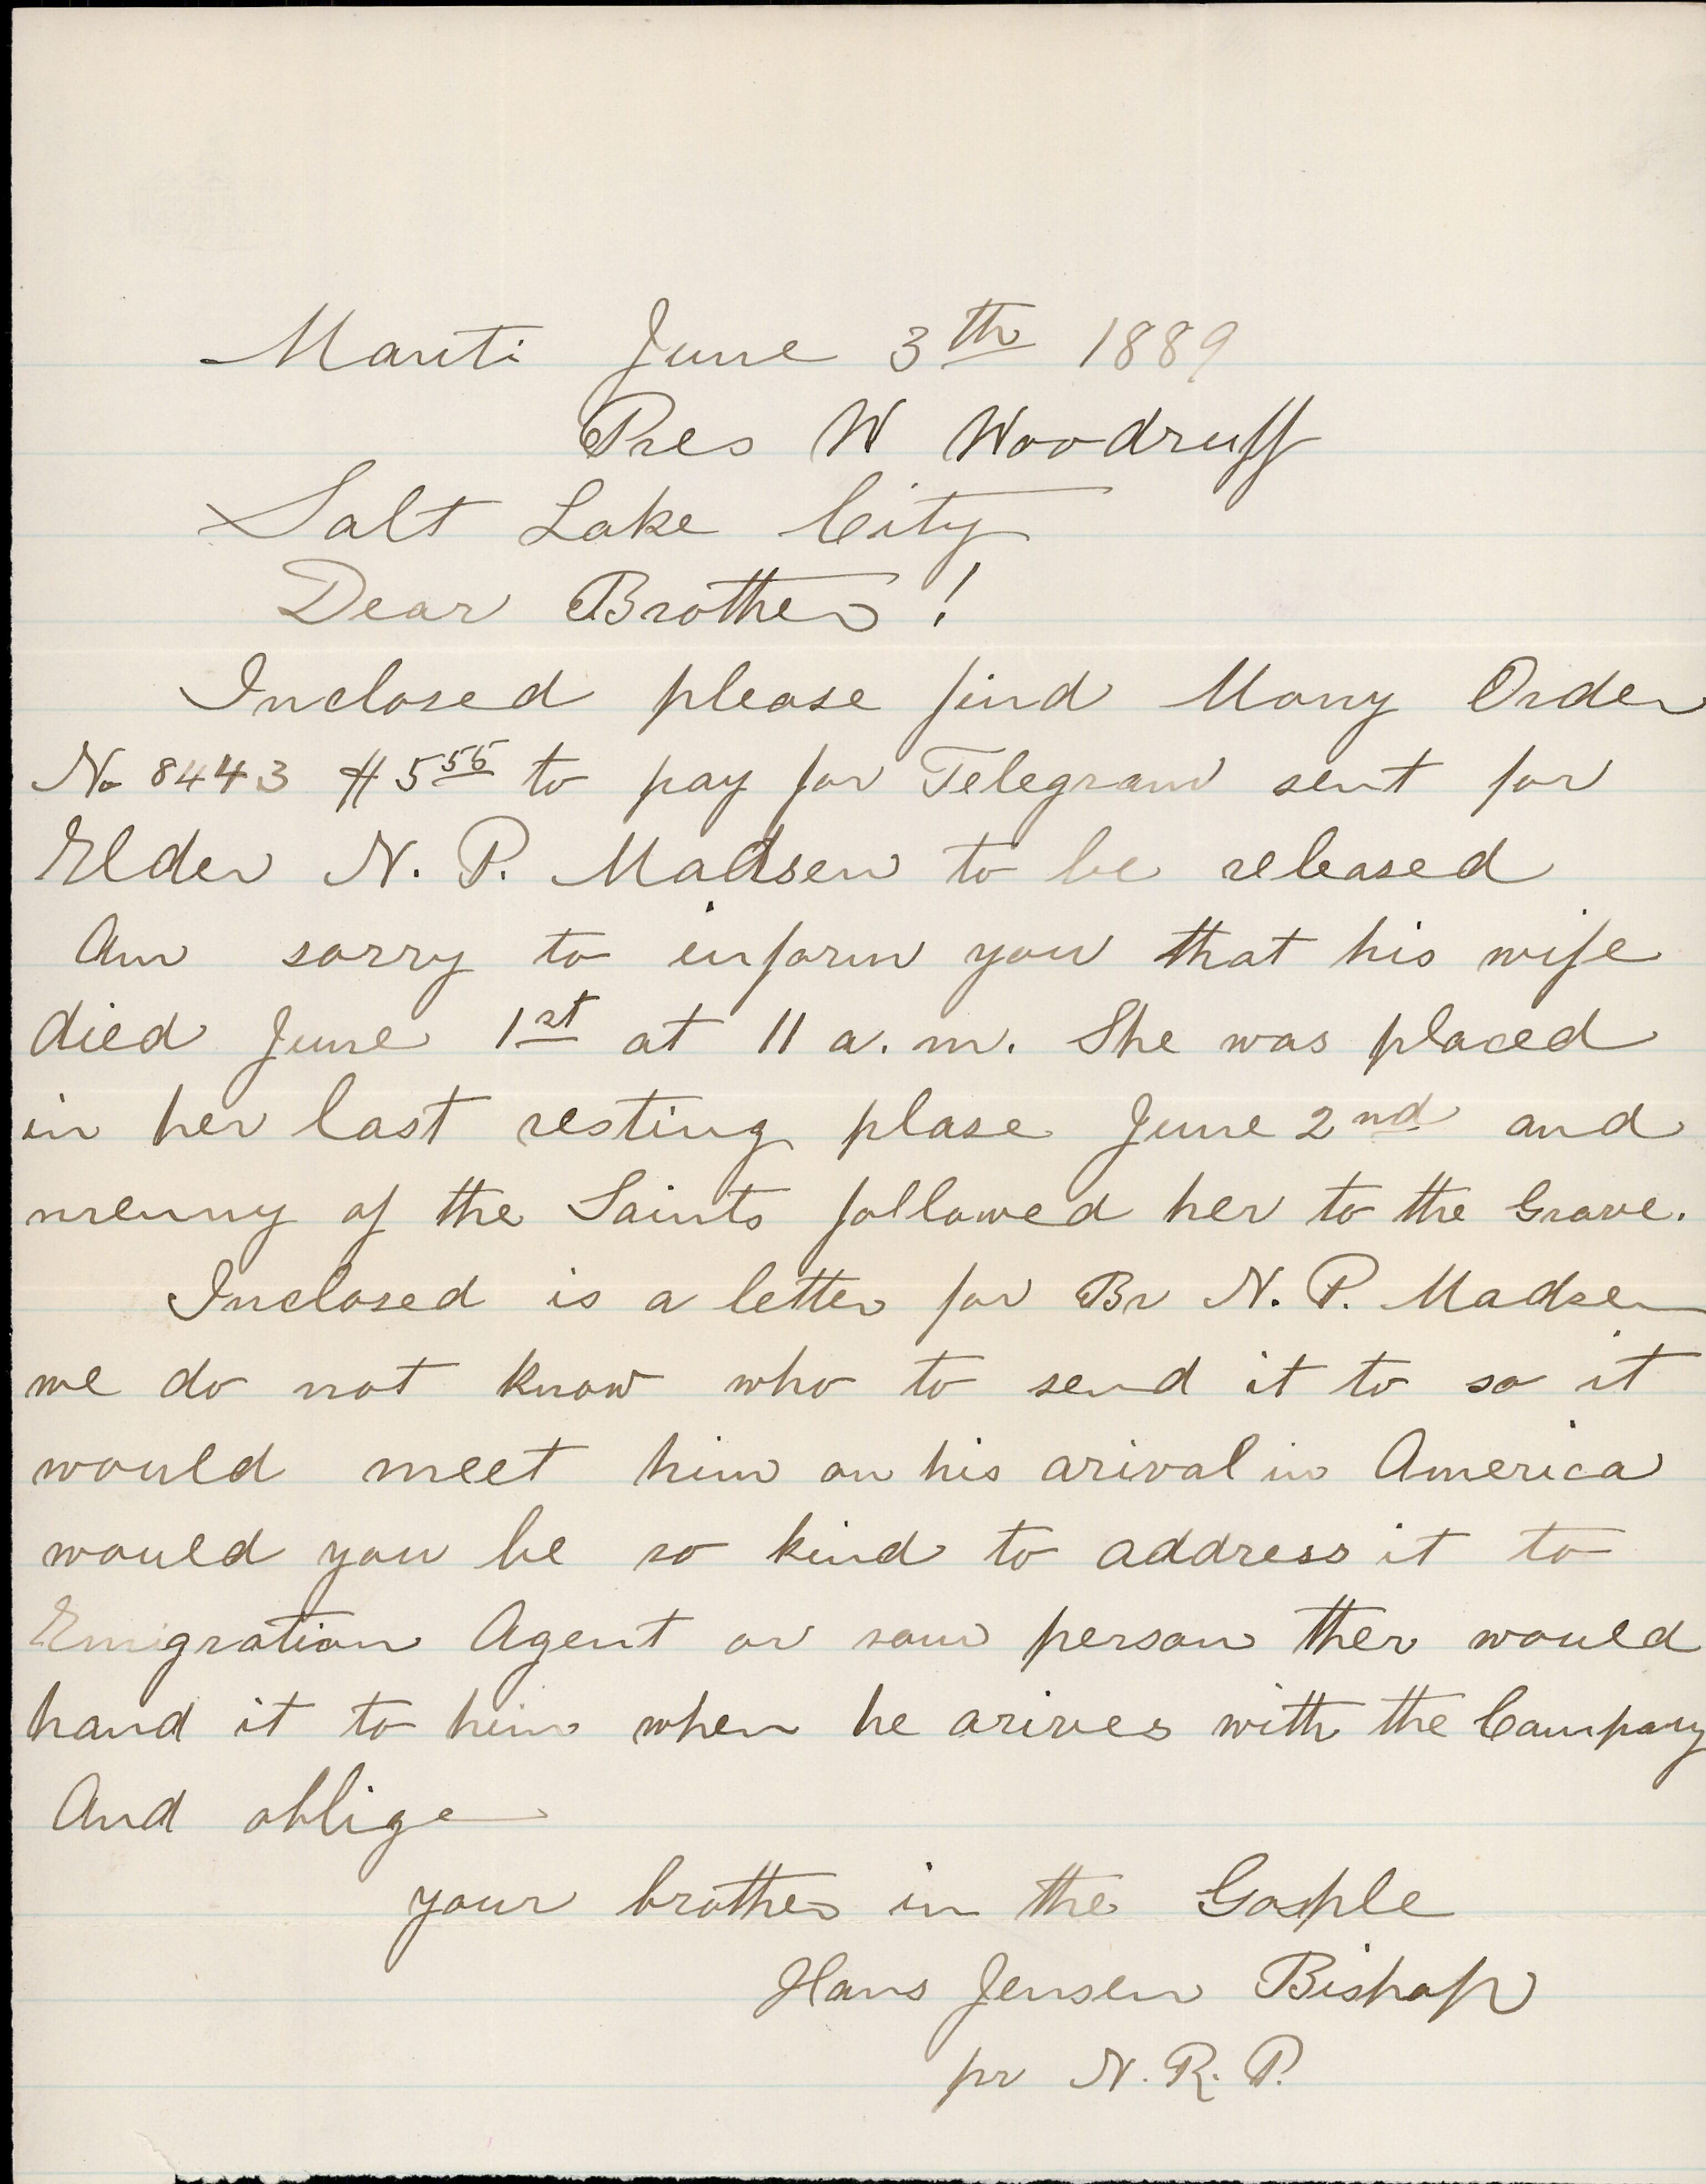 Manti June 3th 1889
Pres W Woodruff
Salt Lake City
Dear Brother!
Inclosed please find Mony Order
No 8443 $5 55 to pay for Telegram sent for
Elder N. P. Madsen to be released
Am sorry to inform you that his wife
died June 1st at 11 a.m. She was placed
in her last resting plase June 2nd and
menny of the Saints followed her to the Grave.
Inclosed is a letter for Br N. P. Madsen
we do not know who to send it to so it
would meet him on his arival in America
would you be so kind to address it to
Emigration Agent or som person ther would
hand it to him when he arives with the Company
And oblige
your brother in the Gosple
Hans Jensen Bishop
pr N. R. P.